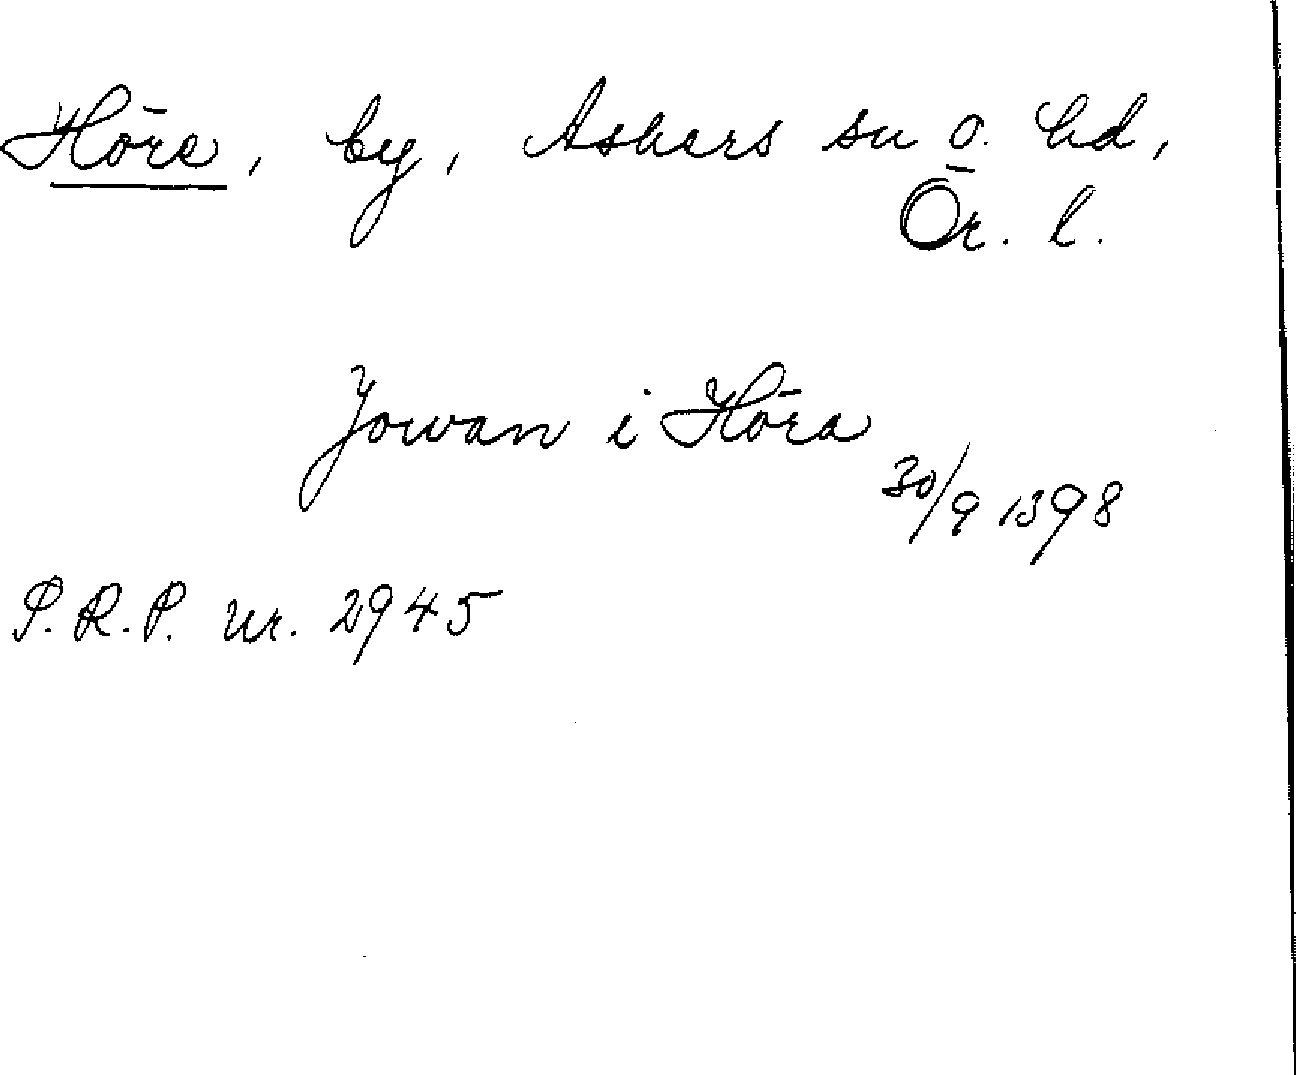 Höra, by, Askers sn o. hd,
Ör. l.
Jowan i Höra
30/9 1398
S.R.P. nr. 2945